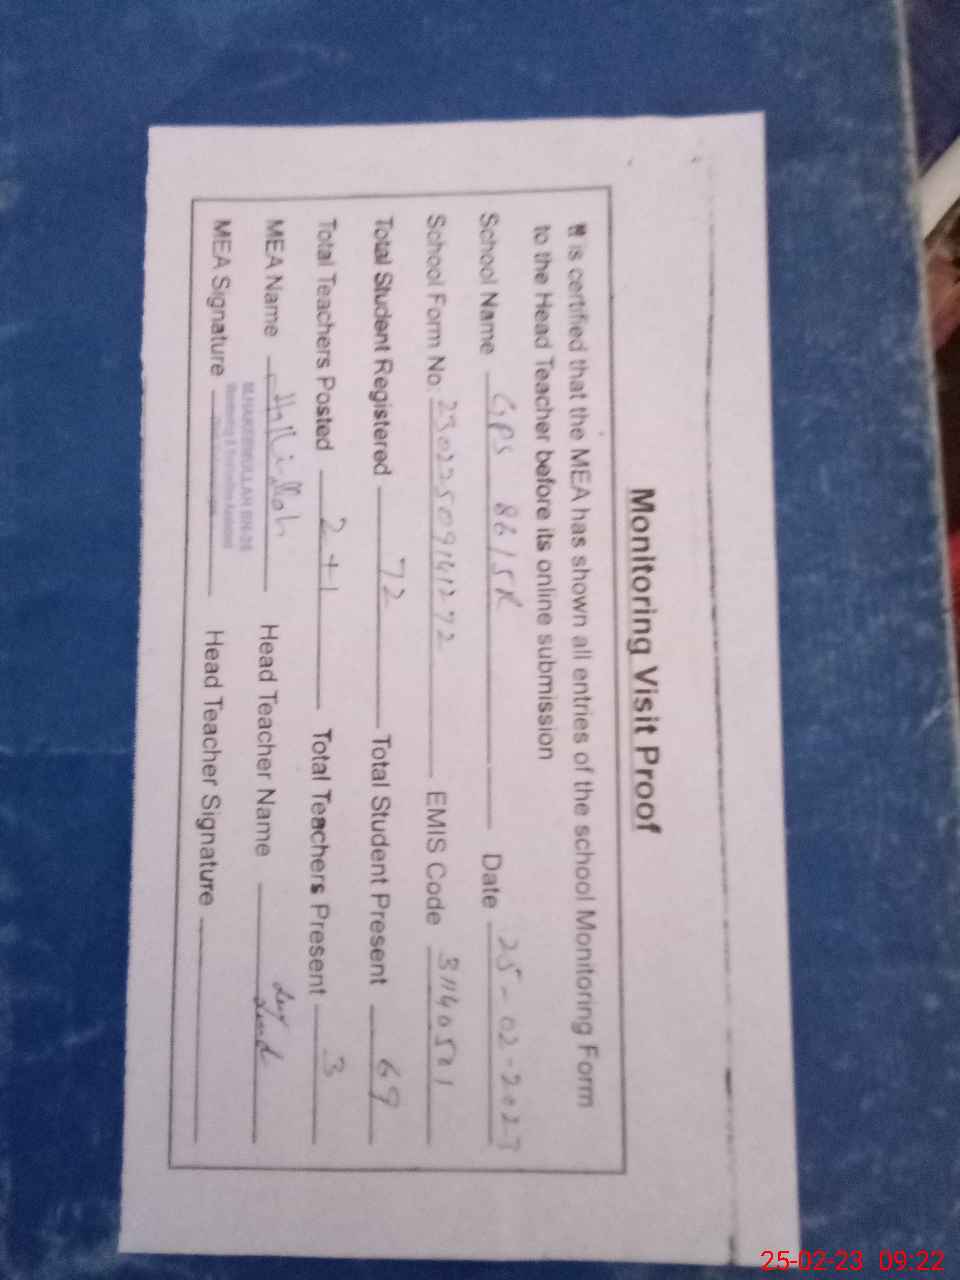 Monitoring Visit Proof
It is certified that the MEA has shown all entries of the school Monitoring Form
to the Head Teacher before its online submission
School Name GPS 86/5R Date 25-02-2023
School Form No. 23022509141272 EMIS Code
Total Student Registered 72 Total Student Present 69
Total Teachers Posted 2+1 Total Teachers Present 3
MEA Name Head Teacher Name
MEA Signature Head Teacher Signature
25-02-23 09:22